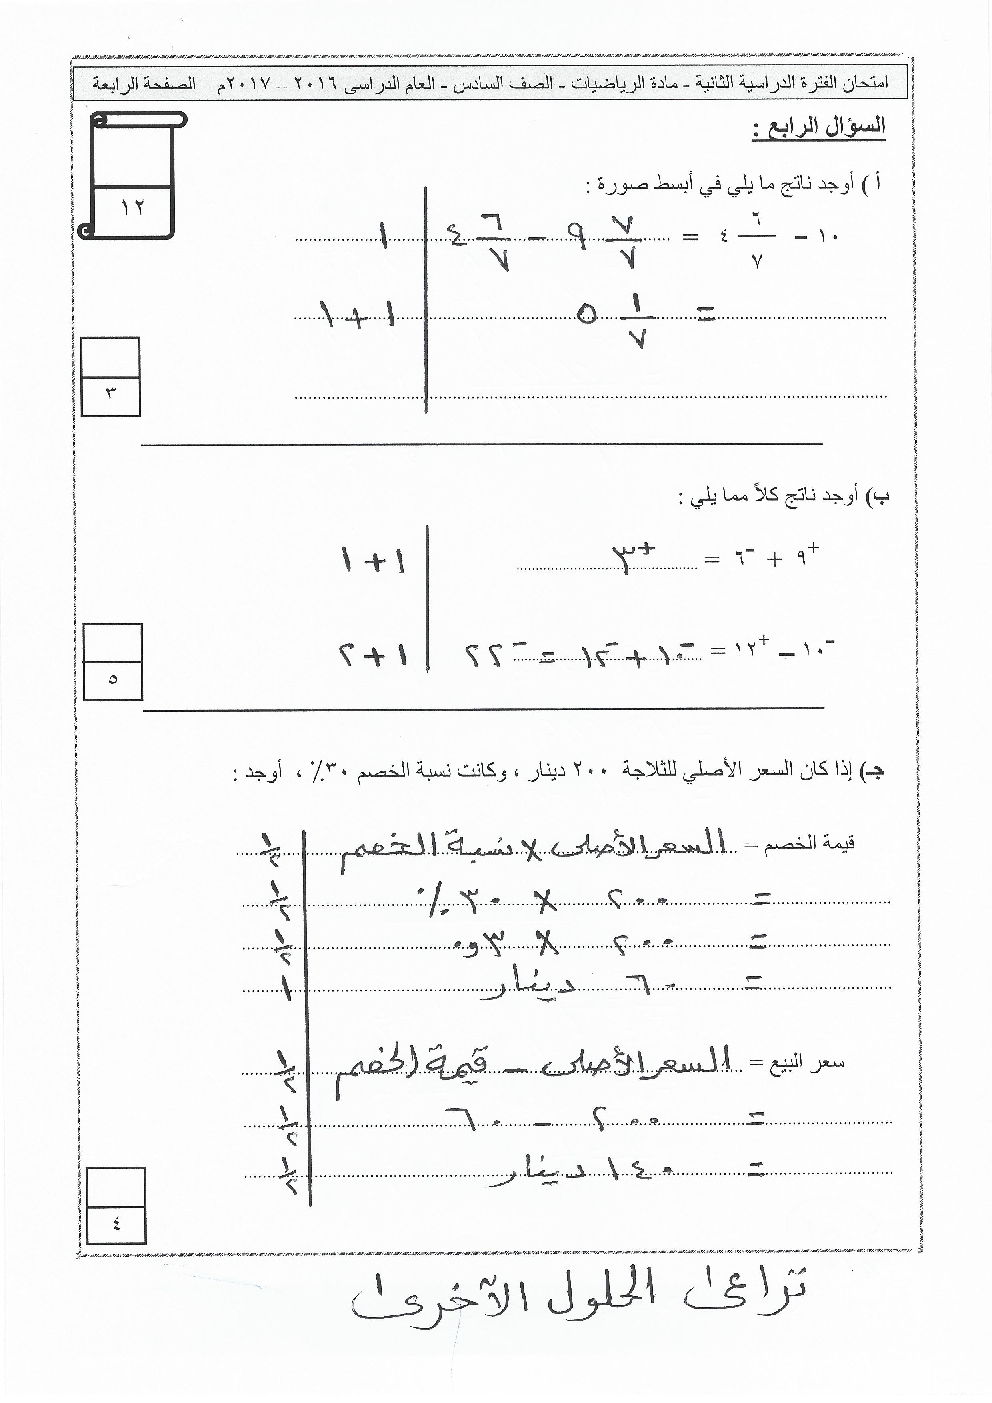 امتحان الفترة الدراسية الثانية - مادة الرياضيات - الصف السادس - العام الدراسى ٢٠١٦ - ٢٠١٧م الصفحة الرابعة
السؤال الرابع :
١٢
أ ) أوجد ناتج ما يلي في أبسط صورة :
١٠ - ٤ ٦/٧ = ٩ ٧/٧ - ٤ ٦/٧ ١
= ٥ ١/٧ ١ + ١
٣
ب) أوجد ناتج كلاً مما يلي :
⁺٩ + ⁻٦ = ⁺٣ ١ + ١
⁻١٠ - ⁺١٢ = ⁻١٠ + ⁻١٢ = ⁻٢٢ ١ + ٢
٥
جـ) إذا كان السعر الأصلي للثلاجة ٢٠٠ دينار ، وكانت نسبة الخصم ٣٠٪ ، أوجد :
قيمة الخصم = السعر الأصلى × نسبة الخصم ١/٢
= ٢٠٠ × ٣٠٪ ١/٢
= ٢٠٠ × ٣و٠ ١/٢
= ٦٠ دينار ١
سعر البيع = السعر الأصلى - قيمة الخصم ١/٢
= ٢٠٠ - ٦٠ ١/٢
= ١٤٠ دينار ١/٢
٤
تراعى الحلول الآخرى